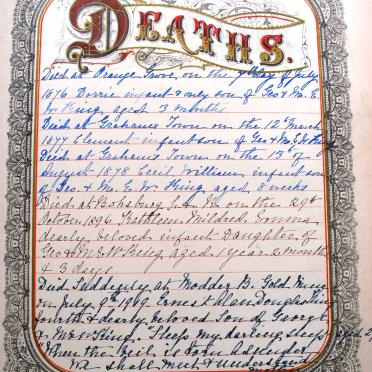 DEATHS.
Died at Orange Grove on the 9th day of July
1876 Dorrie infant & only son of Geo & M. E.
W. King aged 3 months
Died at Grahams Town on the 12th March
1877 Clement infant son of Geo & M. E. W. King
Died at Grahams Town on the 13th of
August 1878 Cecil William infant son
of Geo. & M. E. W. King aged 8 weeks
Died at Boksburg S. A. R. on the 29th
October 1896 Kathleen Mildred Emma
dearly beloved infant Daughter of
Geo & M E W King aged 1 year 2 months
& 3 days
Died Suddenly at Modder B. Gold Mine
on July 9th 1909 Ernest Alan Douglas King
fourth & dearly beloved Son of George
& M E W King. "Sleep my darling sleep
When the veil is torn asunder
We shall meet & understand